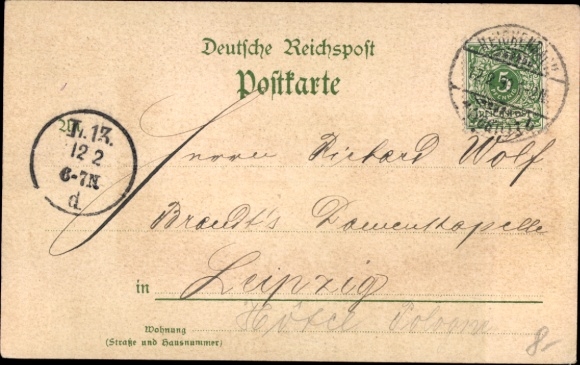 Deutsche Reichspost
Postkarte
5
L. 13.
12 2
6-7N
d.
Herrn Richard Wolf
Brandt's Damenkapelle
in Leipzig
Hôtel
Wohnung
(Straße und Hausnummer)
8.-